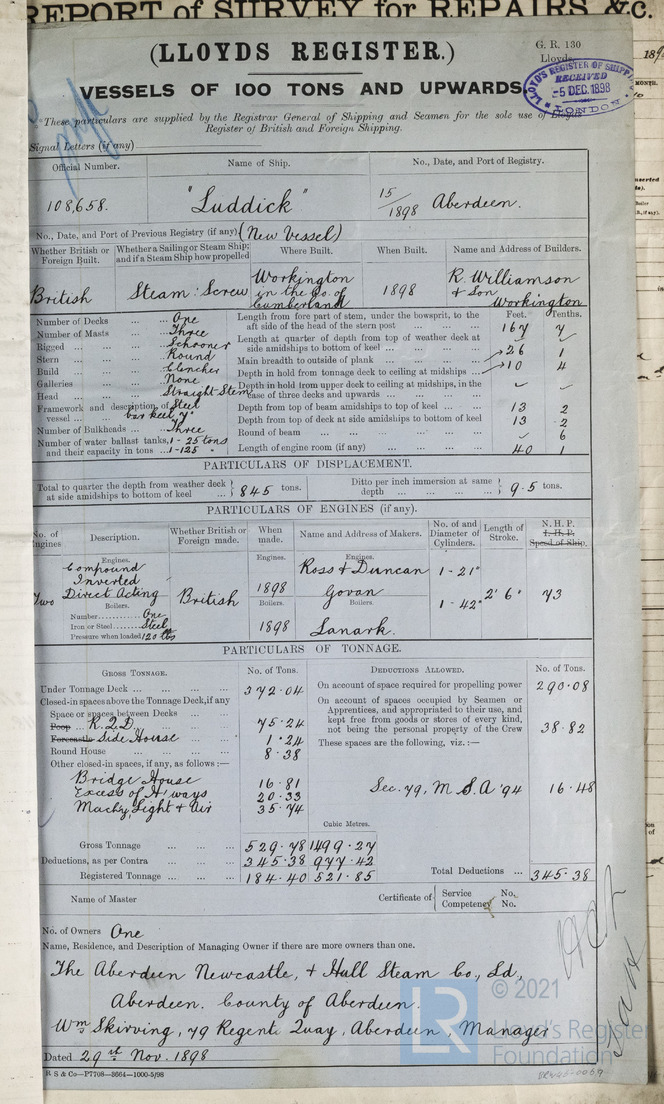 REPORT of SURVEY for REPAIRS, &c.
(LLOYDS REGISTER.)
G. R. 130
Lloyds
VESSELS OF 100 TONS AND UPWARDS.
LLOYD'S REGISTER OF SHIPPING
RECEIVED
-5 DEC. 1898
LONDON
These particulars are supplied by the Registrar General of Shipping and Seamen for the sole use of Lloyds
Register of British and Foreign Shipping.
Signal Letters (if any)
Official Number. Name of Ship. No., Date, and Port of Registry.
108,658. "Luddick" 15/1898 Aberdeen.
No., Date, and Port of Previous Registry (if any) (New Vessel)
Whether British or Foreign Built. Whether a Sailing or Steam Ship; and if a Steam Ship how propelled Where Built. When Built. Name and Address of Builders.
British Steam: Screw Workington in the Co. of Cumberland 1898 R. Williamson & Son Workington
Feet. Tenths.
Number of Decks ... One
Number of Masts ... Three
Rigged ... Schooner
Stern ... Round
Build ... Clencher
Galleries ... None
Head ... Straight Stem
Framework and description of vessel ... Steel bar keel 7"
Number of Bulkheads ... Three
Number of water ballast tanks, and their capacity in tons ... 1 - 25 tons 1 - 125 "
Length from fore part of stem, under the bowsprit, to the aft side of the head of the stern post ... 167 7
Length at quarter of depth from top of weather deck at side amidships to bottom of keel ...
Main breadth to outside of plank ... 26 1
Depth in hold from tonnage deck to ceiling at midships ... 10 4
Depth in hold from upper deck to ceiling at midships, in the case of three decks and upwards ...
Depth from top of beam amidships to top of keel ... 13 2
Depth from top of deck at side amidships to bottom of keel 13 2
Round of beam ... 6
Length of engine room (if any) ... 40 1
PARTICULARS OF DISPLACEMENT.
Total to quarter the depth from weather deck at side amidships to bottom of keel ... 845 tons. Ditto per inch immersion at same depth ... 9.5 tons.
PARTICULARS OF ENGINES (if any).
No. of Engines Description. Whether British or Foreign made. When made. Name and Address of Makers. No. of and Diameter of Cylinders. Length of Stroke. N. H. P. I. H. P. Speed of Ship.
Engines. Engines. Engines.
Compound Ross & Duncan 1 - 21"
Inverted
Two Direct Acting British 1898 Govan 2' 6" 73
Boilers. Boilers. Boilers. 1 - 42"
Number ... One
Iron or Steel ... Steel 1898 Lanark.
Pressure when loaded 120 lbs
PARTICULARS OF TONNAGE.
GROSS TONNAGE. No. of Tons. DEDUCTIONS ALLOWED. No. of Tons.
Under Tonnage Deck ... 372.04
Closed-in spaces above the Tonnage Deck, if any
Space or spaces between Decks ...
Poop ... R.Q.D. 75.24
Forecastle Side House ... 1.24
Round House ... 8.38
Other closed-in spaces, if any, as follows:—
Bridge House 16.81
Excess of H'ways 20.33
Machy Light & Air 35.74
On account of space required for propelling power 290.08
On account of spaces occupied by Seamen or Apprentices, and appropriated to their use, and kept free from goods or stores of every kind, not being the personal property of the Crew 38.82
These spaces are the following, viz.:—
Sec. 79, M.S.A '94 16.48
Cubic Metres.
Gross Tonnage ... 529.78 1499.27
Deductions, as per Contra ... 345.38 977.42
Registered Tonnage ... 184.40 521.85
Total Deductions ... 345.38
Name of Master Certificate of Service No. Competency No.
No. of Owners One
Name, Residence, and Description of Managing Owner if there are more owners than one.
The Aberdeen Newcastle, & Hull Steam Co., Ld,
Aberdeen. County of Aberdeen.
Wm Skirving, 79 Regent Quay, Aberdeen, Manager
Dated 29th Nov. 1898
R S & Co—P7708—3664—1000-5/98
LR
© 2021
Lloyd's Register
Foundation